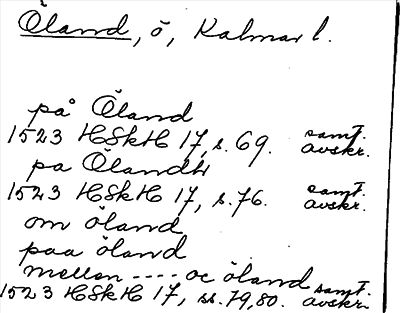 Öland, ö, Kalmar l.
på Öland
1523 HSkH 17, s. 69. samt. avskr.
pa Ölandh
1523 HSkH 17, s. 76. samt. avskr.
om öland
paa öland
mellon ---- oc öland
1523 HSkH 17, ss. 79, 80. samt. avskr.